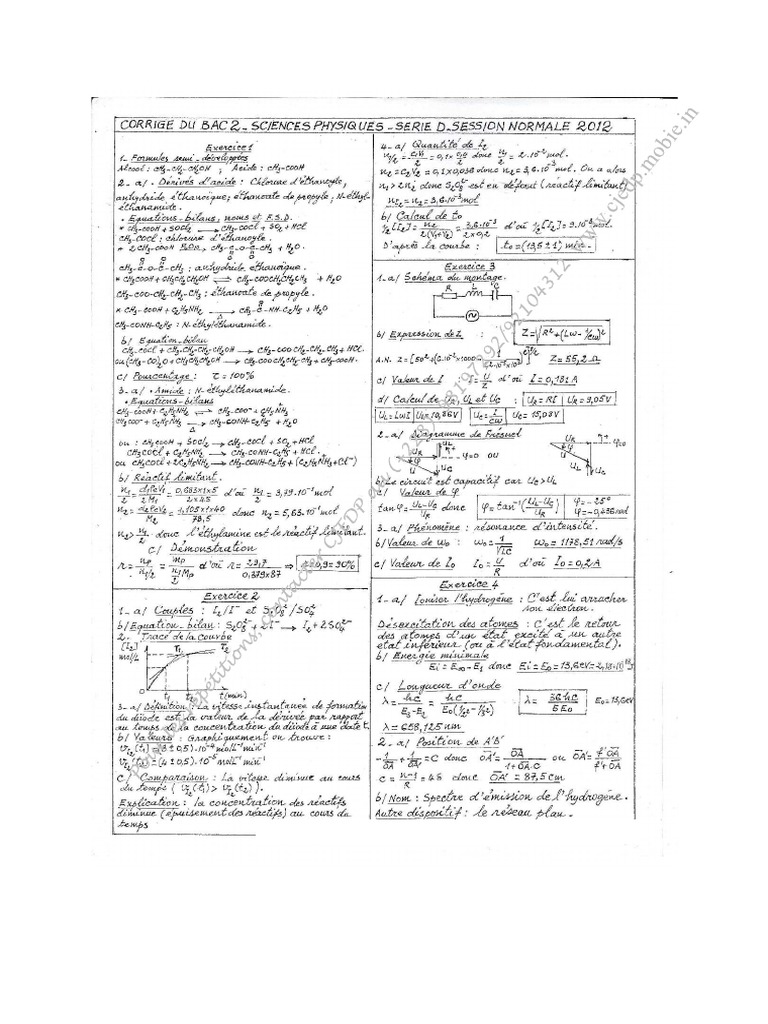 CORRIGE DU BAC 2 - SCIENCES PHYSIQUES - SERIE D - SESSION NORMALE 2012
Exercice 1
1- Formules semi-développées
Alcool : CH3-CH2-CH2OH ; Acide : CH3-COOH
2- a/ Dérivés d'acide : Chlorure d'éthanoyle,
anhydride éthanoïque, éthanoate de propyle, N-éthyl-
éthanamide.
• Equations-bilans, noms et F.S.D.
* CH3-COOH + SOCl2 → CH3-COCl + SO2 + HCl
CH3-COCl : chlorure d'éthanoyle.
* 2 CH3-COOH P4O10→ CH3-C-O-C-CH3 + H2O.
O O
CH3-C-O-C-CH3 : anhydride éthanoïque.
O O
* CH3COOH + CH3CH2CH2OH ⇌ CH3-COOCH2CH2CH3 + H2O
CH3-COO-CH2-CH2-CH3 : éthanoate de propyle.
* CH3-COOH + C2H5NH2 → CH3-C-NH-C2H5 + H2O
Δ O
CH3-CONH-C2H5 : N-éthyléthanamide.
b/ Equation-bilan
CH3-COCl + CH3-CH2-CH2OH → CH3-COO CH2-CH2-CH3 + HCl.
ou (CH3-CO)2O + CH3CH2CH2OH → CH3-COO CH2CH2-CH3 + CH3-COOH.
c/ Pourcentage : τ = 100%
3- a/ • Amide : N-éthyléthanamide.
• Equations-bilans
CH3-COOH + C2H5NH2 ⇌ CH3-COO⁻ + C2H5NH3
CH3COO⁻ + C2H5NH3 →Δ CH3-CONH-C2H5 + H2O
ou : CH3COOH + SOCl2 → CH3-COCl + SO2 + HCl
CH3COCl + C2H5NH2 → CH3-CONH-C2H5 + HCl.
ou CH3COCl + 2C2H5NH2 → CH3-CONH-C2H5 + (C2H5NH3 + Cl⁻)
b/ Réactif limitant.
n1/2 = d1ρeV1/2M1 = 0,683×1×5/2×45 d'où n1/2 = 3,79.10⁻² mol
n2 = d2ρeV2/M2 = 1,105×1×40/78,5 donc n2 = 5,63.10⁻¹ mol
n2 > n1/2 donc l'éthylamine est le réactif limitant.
c/ Démonstration
r = np/(n1/2) = mp/(n1/2 Mp) d'où r = 29,7/0,379×87 ⇒ r = 0,9 = 90%
Exercice 2
1- a/ Couples : I2/I⁻ et S2O8²⁻/SO4²⁻
b/ Equation-bilan : S2O8²⁻ + 2I⁻ → I2 + 2SO4²⁻
2- Tracé de la courbe
[I2]
mol/L
T1 T2
t1 t2 t(min)
3- a/ Définition : La vitesse instantanée de formation
du diiode est la valeur de la dérivée par rapport
au temps de la concentration du diiode à une date t.
b/ Valeurs : Graphiquement on trouve :
vI2(t1) = (3 ± 0,5).10⁻⁴ mol L⁻¹ min⁻¹
vI2(t2) = (4 ± 0,5).10⁻⁵ mol L⁻¹ min⁻¹
c/ Comparaison : La vitesse diminue au cours
du temps ( vI2(t1) > vI2(t2) ).
Explication : la concentration des réactifs
diminue (épuisement des réactifs) au cours de
temps
4- a/ Quantité de I2
n1/2 = C1V1/2 = 0,1×0,4/2 donc n1/2 = 2.10⁻² mol.
n2 = C2V2 = 0,1×0,036 donc n2 = 3,6.10⁻³ mol. On a alors
n1 > 2n2 donc S2O8²⁻ est en défaut (réactif limitant)
nI2 = n2 = 3,6.10⁻³ mol
b/ Calcul de t0
½[I2] = nI2/2(V1+V2) = 3,6.10⁻³/2×0,2 d'où ½[I2] = 9.10⁻³ mol.
D'après la courbe : t0 = (13,5 ± 1) min.
Exercice 3
1- a/ Schéma du montage.
R L C
b/ Expression de Z : Z = √R² + (Lω - 1/Cω)²
Z = 55,2 Ω
c/ Valeur de I I = U/Z d'où I = 0,181 A
d/ Calcul de UR, UL et UC : UR = RI UR = 9,05V
UL = LωI UL = 10,86V UC = I/Cω UC = 15,08V
2- a/ Diagramme de Fresnel
b/ Le circuit est capacitif car UC > UL
c/ Valeur de φ
tanφ = UL-UC/UR donc φ = tan⁻¹(UL-UC/UR) φ = -25° φ = -0,436 rad
3- a/ Phénomène : résonance d'intensité.
b/ Valeur de ω0 : ω0 = 1/√LC ω0 = 1178,51 rad/s
c/ Valeur de I0 I0 = U/R d'où I0 = 0,2 A
Exercice 4
1- a/ Ioniser l'hydrogène : C'est lui arracher
son électron.
Désexcitation des atomes : C'est le retour
des atomes d'un état excité à un autre
état inférieur (ou à l'état fondamental).
b/ Energie minimale
Ei = E∞ - E1 donc Ei = E0 = 13,6eV
c/ Longueur d'onde
λ = hC/E3-E2 = hC/E0(1/2² - 1/3²) λ = 36hC/5E0 E0 = 13,6eV
λ = 658,125 nm
2- a/ Position de A'B'
-1/OA + 1/OA' = C donc OA' = OA/1+OA.C ou OA' = f'OA/f'+OA
C = n-1/R = 4δ donc OA' = 87,5 cm
b/ Nom : Spectre d'émission de l'hydrogène.
Autre dispositif : le réseau plan.